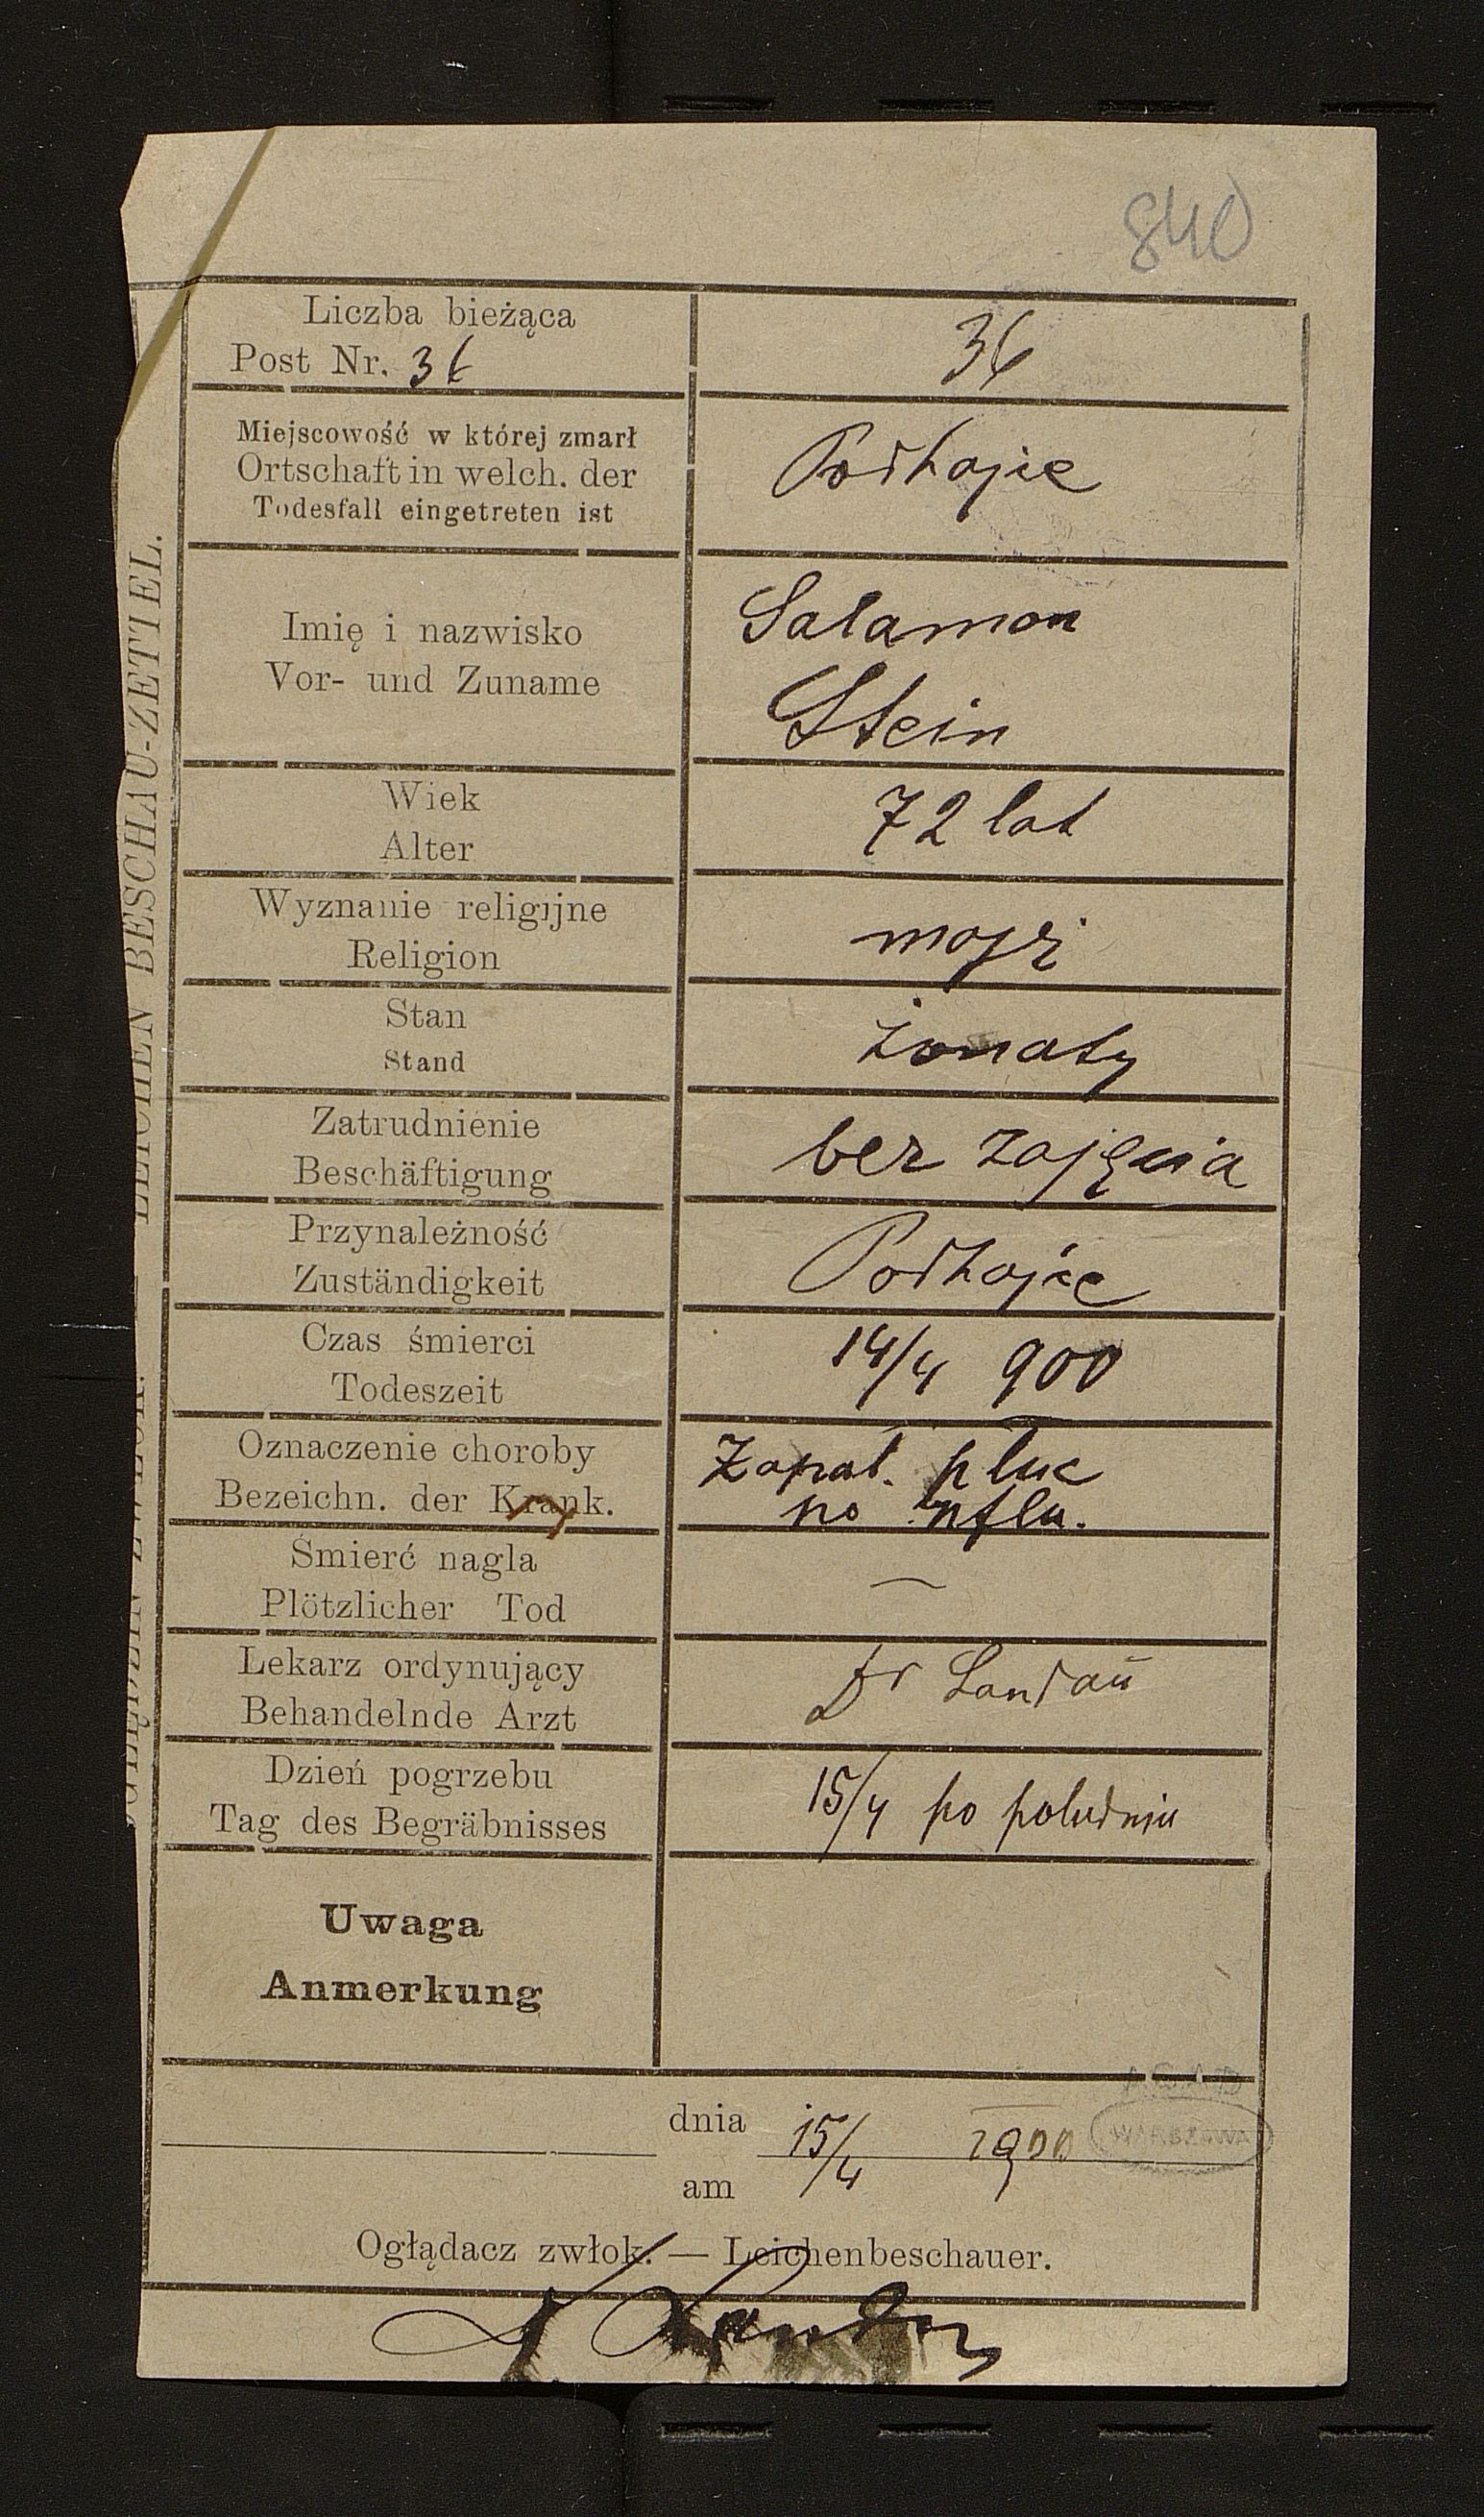 840
Liczba bieżąca
Post Nr. 36
36
Miejscowość w której zmarł
Ortschaft in welch. der
Todesfall eingetreten ist
Podhajce
Imię i nazwisko
Vor- und Zuname
Salamon
Stein
Wiek
Alter
72 lat
Wyznanie religijne
Religion
mojż
Stan
Stand
żonaty
Zatrudnienie
Beschäftigung
bez zajęcia
Przynależność
Zuständigkeit
Podhajce
Czas śmierci
Todeszeit
14/4 900
Oznaczenie choroby
Bezeichn. der Krank.
Zapal. pluc
po influ.
Śmierć nagla
Plötzlicher Tod
—
Lekarz ordynujący
Behandelnde Arzt
Dr Landaŭ
Dzień pogrzebu
Tag des Begräbnisses
15/4 po poludniu
Uwaga
Anmerkung
dnia 15/4 1900
am
A.G.A.D
WARSZAWA
Oglądacz zwłok. — Leichenbeschauer.
LEICHEN BESCHAU-ZETTEL.